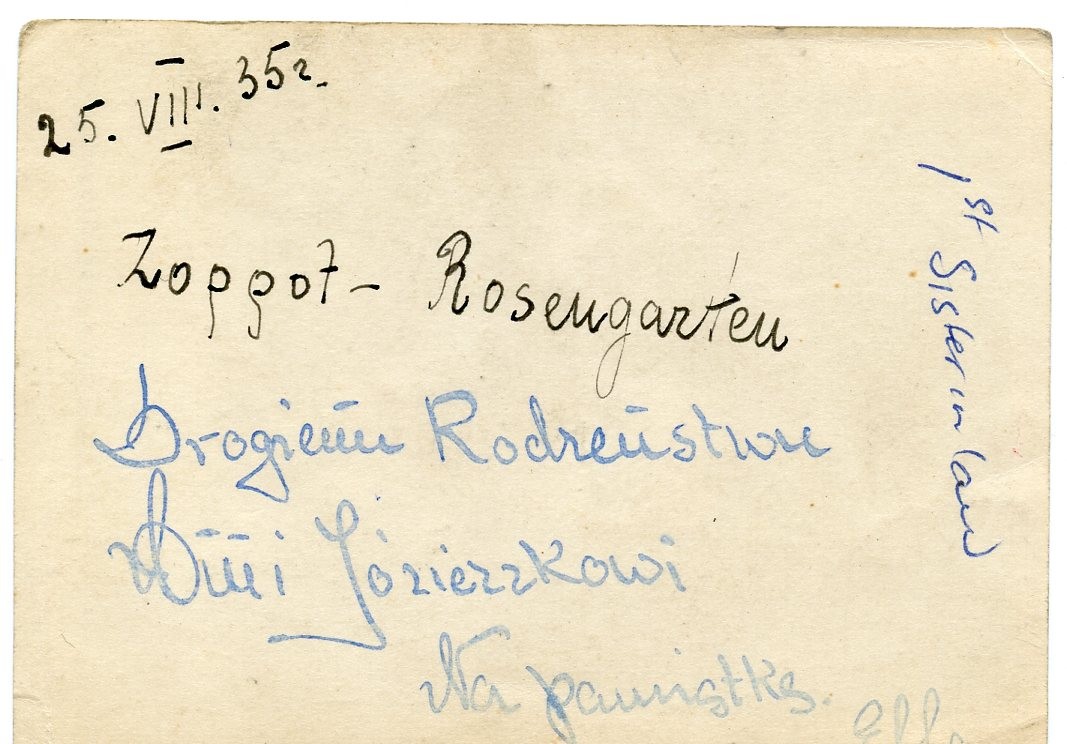 25. VIII. 35r.
Zoppot - Rosengarten
Drogiemu Rodzeństwu
Józieczkowi
Na pamiątkę.
1st Sister in law